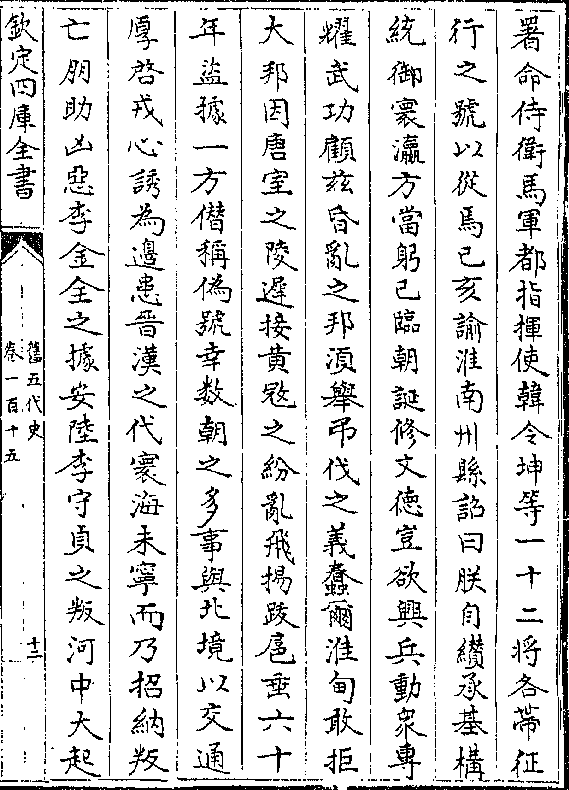 署命侍衛馬軍都指揮使韓令坤等一十二將各帶征
行之號以從焉己亥諭淮南州縣詔曰朕自纘承基構
統御寰瀛方當躬己臨朝誕修文德豈欲興兵動衆專
耀武功顧兹昏亂之邦須舉弔伐之義蠢爾淮甸敢拒
大邦因唐室之陵遲接黄冦之紛亂飛揚跋扈垂六十
年盜據一方僭稱偽號幸數朝之多事與北境以交通
厚啓戎心誘為邊患晉漢之代寰海未寧而乃招納叛
亡朋助凶惡李金全之據安陸李守貞之叛河中大起
欽定四庫全書
舊五代史
卷一百十五
十二